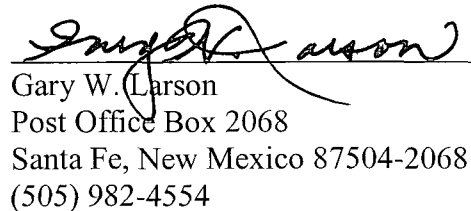 Gary W. Larson
Post Office Box 2068
Santa Fe, New Mexico 87504-2068
(505) 982-4554